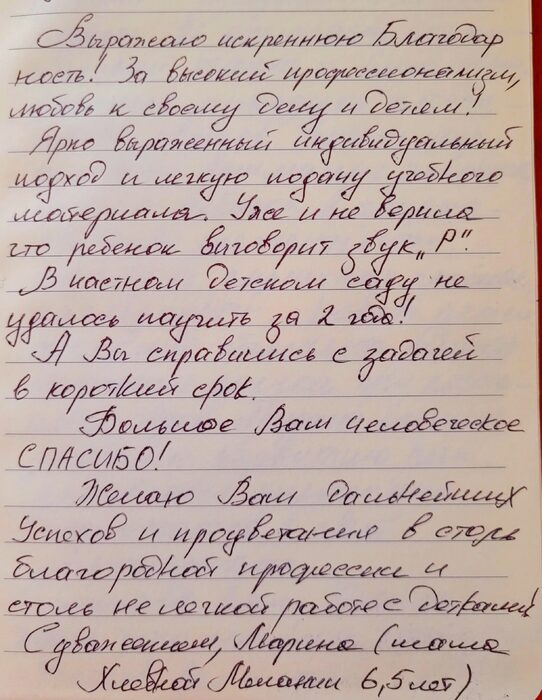 Выражаю искреннюю Благодар
ность! За высокий профессионализм,
любовь к своему делу и детям!
Ярко выраженный индивидуальный
подход и легкую подачу учебного
материала. Уже и не верила
что ребенок выговорит звук „Р".
В частном детском саду не
удалось научить за 2 года!
А Вы справились с задачей
в короткий срок.
Большое Вам человеческое
СПАСИБО!
Желаю Вам дальнейших
успехов и процветания в столь
благородной профессии и
столь не легкой работе с детками!
С уважением, Марина (мама
Хлевной Мелании 6,5 лет)